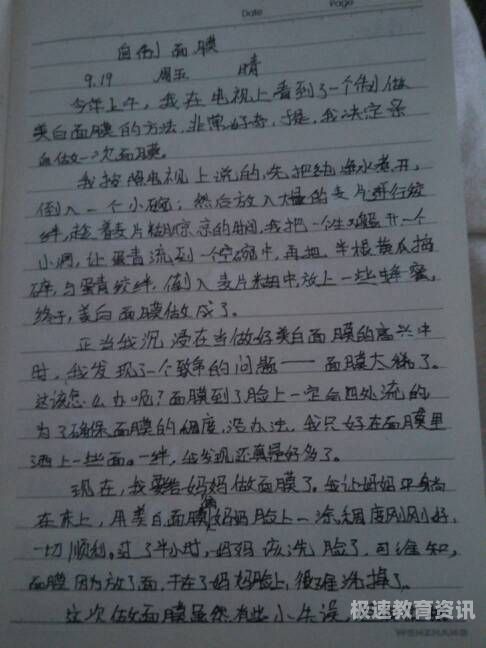 Date Page
自制面膜
9.19 周五 晴
今年上午,我在电视上看到了一个制做
美白面膜的方法,非常好奇,于是,我决定亲
自做一次面膜。
我按照电视上说的,先把纯净水煮开,
倒入一个小碗;然后放入大量的麦片进行绞
拌,趁着麦片糊凉的时间,我把一个生鸡蛋开一个
小洞,让蛋青流到一个空碗中,再把半根黄瓜捣
碎,与蛋青绞拌,倒入麦片糊中放上一些蜂蜜,
终于,美白面膜做成了。
正当我沉浸在当做好美白面膜的高兴中
时,我发现了一个致命的问题——面膜太稀了。
这该怎么办呢?面膜到了脸上一定会四处流的
为了确保面膜的稠度,没办法,我只好在面膜里
洒上一些面。一绊,我发现还真是好多了。
现在,我要给妈妈做面膜了。我让妈妈平躺
在床上,用美白面膜往妈妈脸上一涂,稠度刚刚好,
一切顺利。过了半小时,妈妈该洗脸了,可谁知,
面膜因为放了面,干在了妈妈脸上,很难洗掉了。
这次做面膜虽然有些小失误,
极速教育资讯
WENZHANG